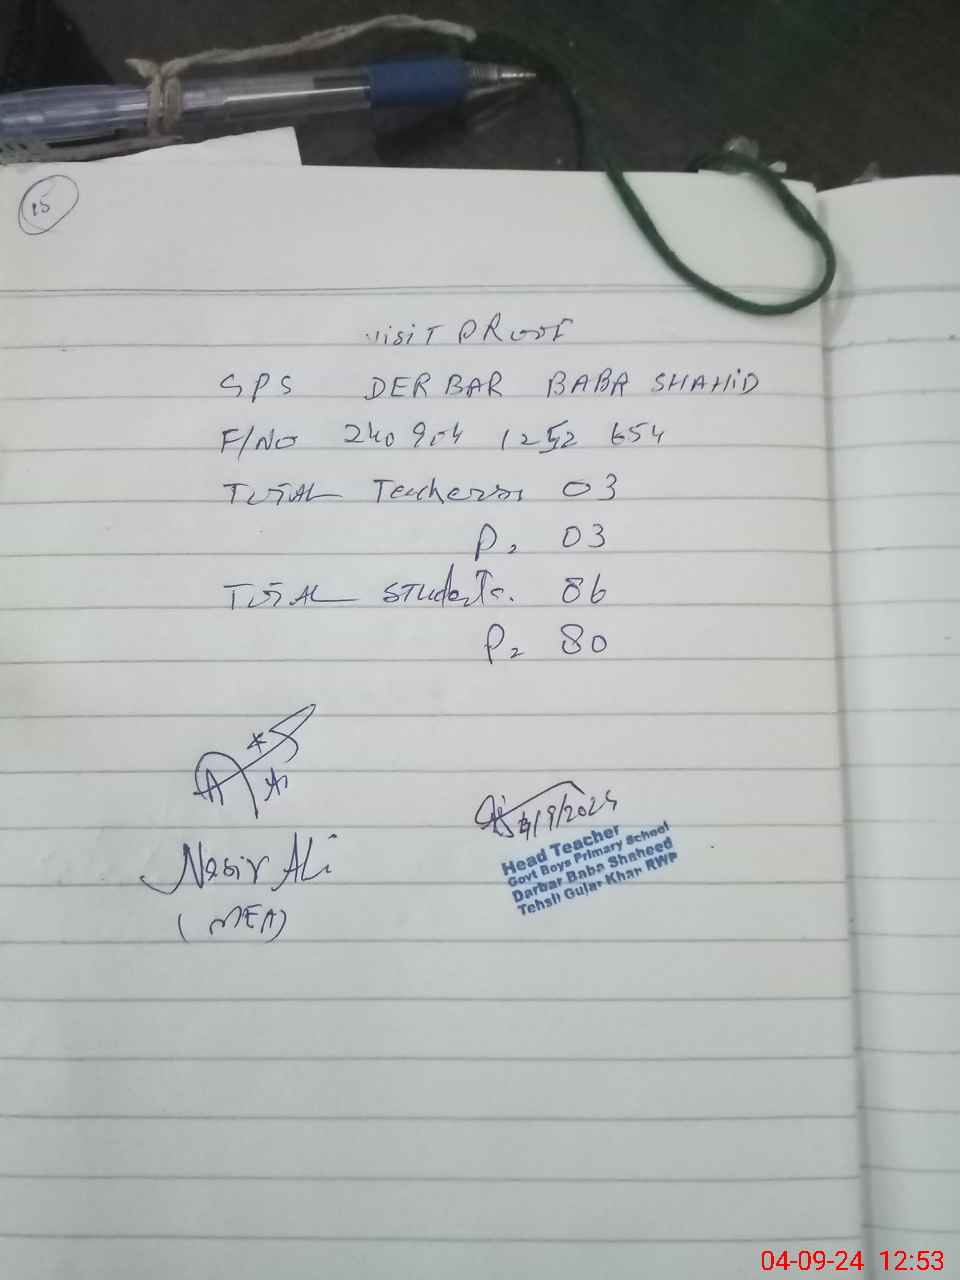 15
VISIT PROOF
GPS DERBAR BABA SHAHID
F/NO 240904 1252 654
TOTAL Teachers, 03
P2 03
TOTAL Students. 86
P2 80
Nasir Ali
(MEA)
4/9/2024
Head Teacher
Govt Boys Primary School
Darbar Baba Shaheed
Tehsil Gujar Khan RWP
04-09-24 12:53